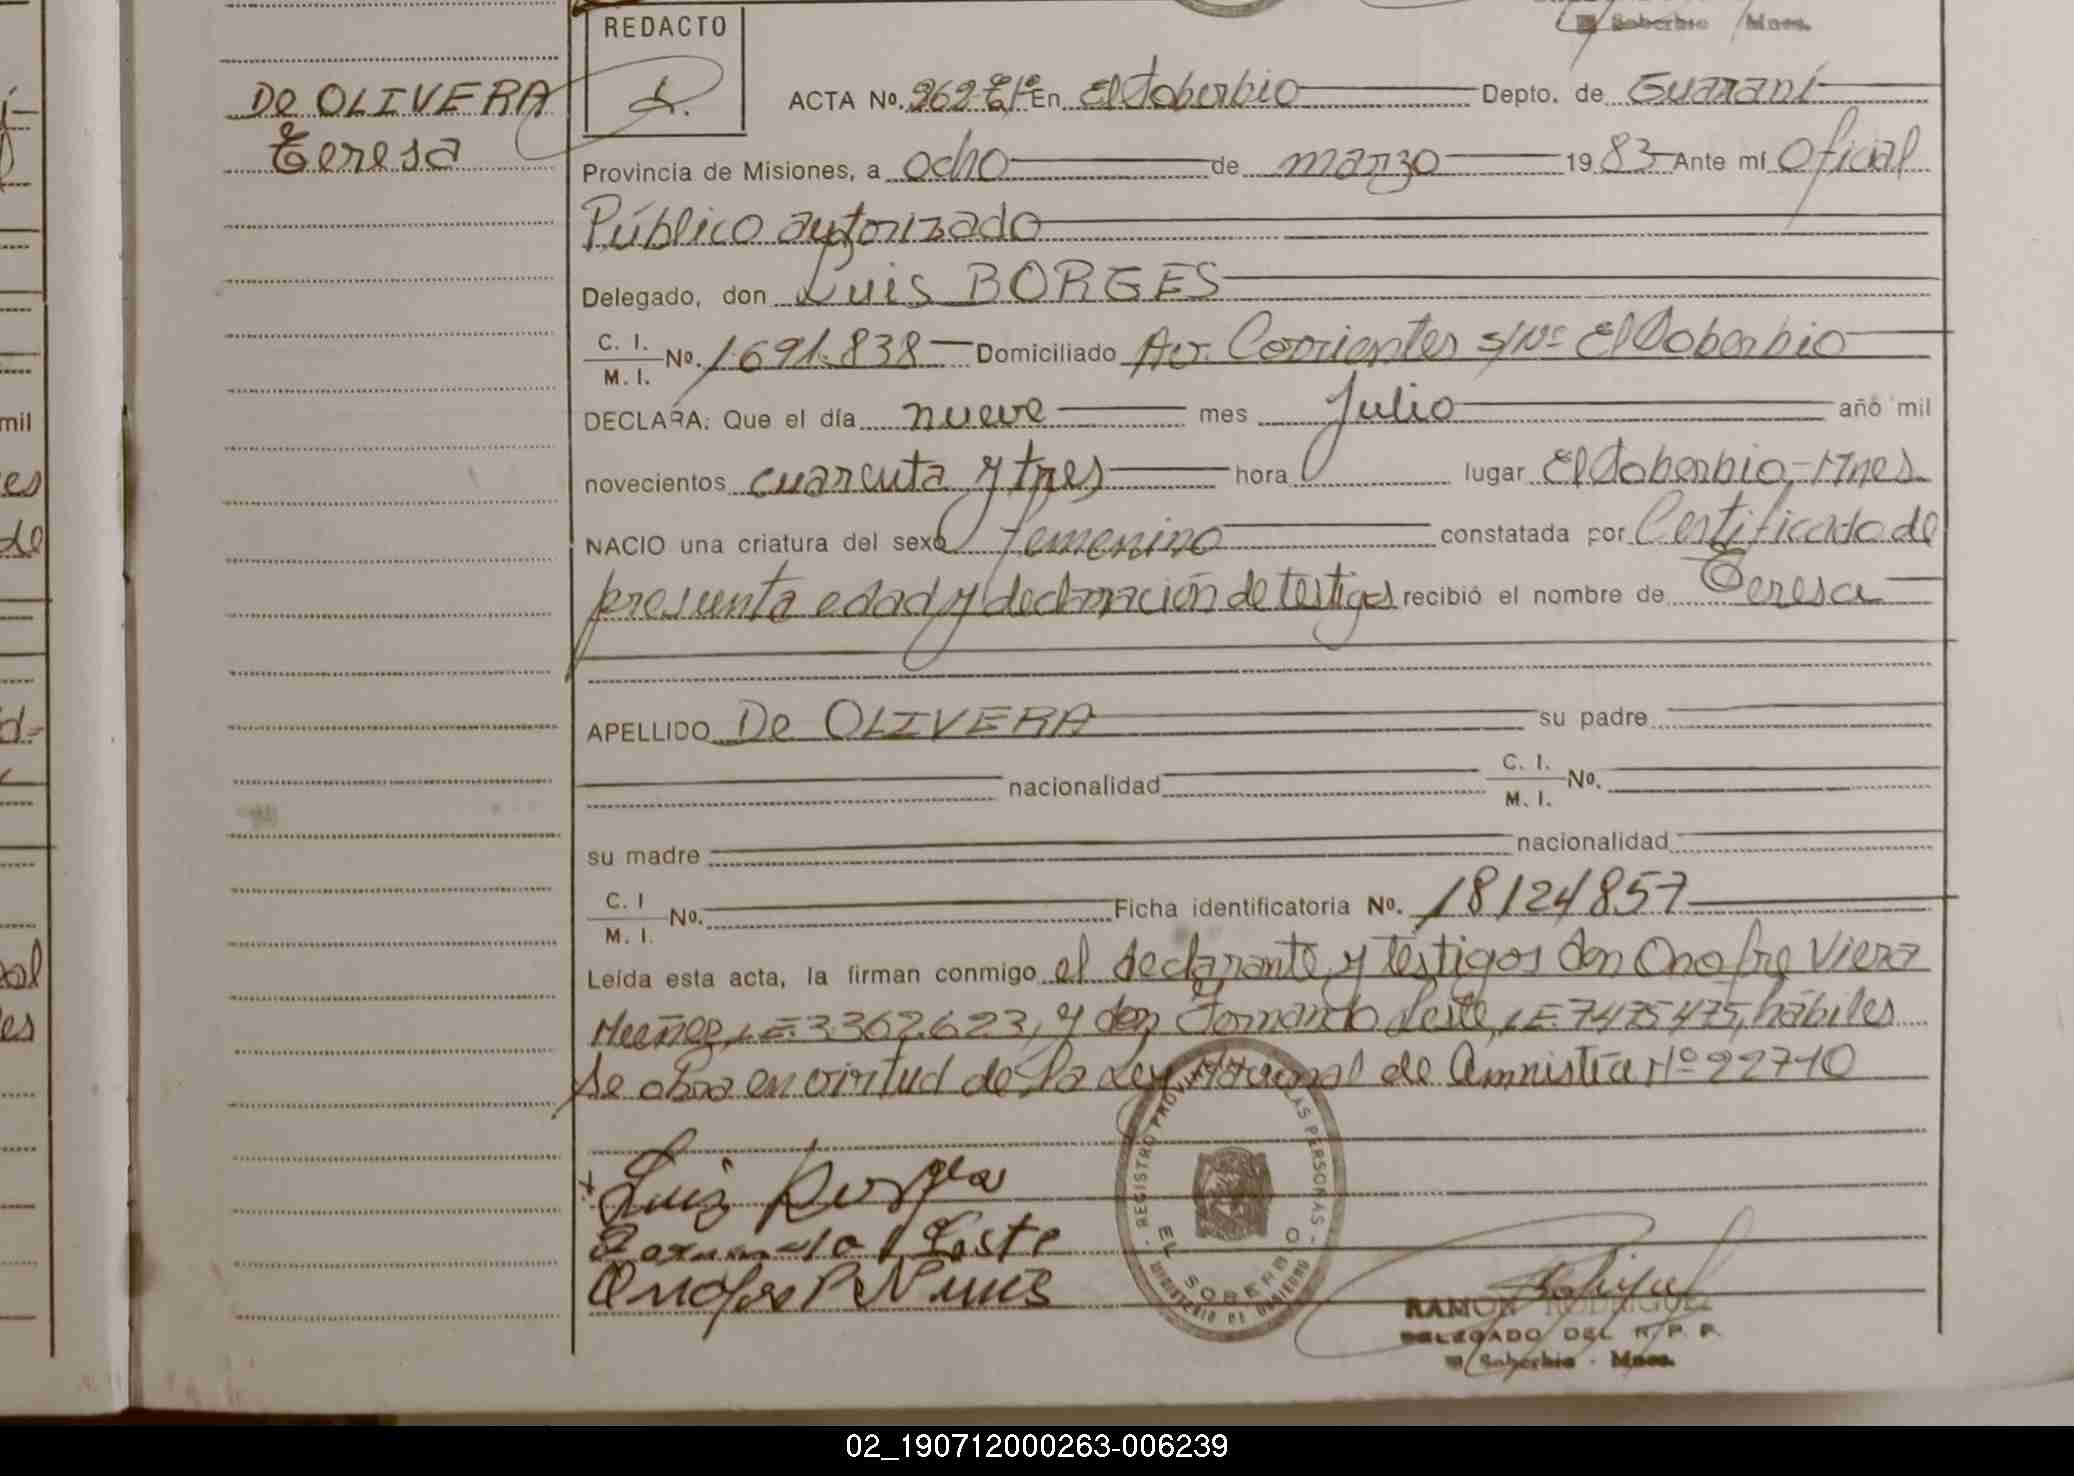 REDACTO
Soberbio Mnes.
De OLIVERA
Teresa
ACTA No. 262 En El Soberbio Depto. de Guaraní
Provincia de Misiones, a ocho de marzo 1983 Ante mí Oficial
Público autorizado
Delegado, don Luis BORGES
C. I.
M. I. No. 1.691.838 Domiciliado Av. Corrientes s/Nº El Soberbio
DECLARA: Que el día nueve mes Julio año mil
novecientos cuarenta y tres hora lugar El Soberbio - Mnes.
NACIO una criatura del sexo femenino constatada por Certificado de
presunta edad y declaración de testigos recibió el nombre de Teresa
APELLIDO De OLIVERA su padre
nacionalidad C. I.
M. I. No.
su madre nacionalidad
C. I
M. I. No. Ficha identificatoria No. 18124857
Leída esta acta, la firman conmigo el declarante y testigos don Onofre Viera
LE. 3362623, y don Leite, LE. 7475475, hábiles
Se obra en virtud de la Ley Nacional de Amnistía Nº 22710
REGISTRO PROVINCIAL DE LAS PERSONAS
EL SOBERBIO
MINISTERIO DE GOBIERNO
Luiz Borges
RAMON RODRIGUEZ
DELEGADO DEL R. P. P.
El Soberbio - Mnes.
mil
es
de
02_190712000263-006239